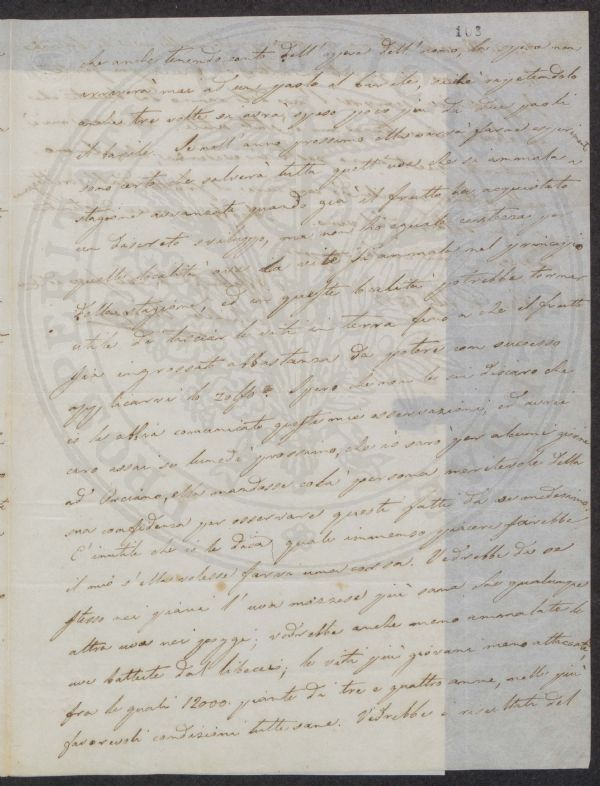 103
che anche tenendo conto dell'opera dell'uomo, la spesa non
arriverà mai ad un paolo il barile, perchè ripetendolo
anche tre volte si avrà speso poco più di due paoli
il barile. Se nell'anno prossimo ella vorrà farne esperiment
sono certo che salverà tutta quell'uva che si ammala a
stagione avanzata quando già il frutto ha acquistato
un discreto sviluppo, ma non ho eguale certezza per
quelle località ove la vite si ammala nel principio
della stagione, ed in queste località potrebbe tornar
utile di lasciar le viti in terra fino a che il frutto
sia ingrossato abbastanza da potere con successo
applicarvi lo zolfo. Spero che non le sia discaro che
io le abbia comunicate queste mie osservazioni, ed avrei
caro assai se lunedì prossimo, che io sarò per alcuni giorni
ad Orciano, ella mandasse colà persona meritevole della
sua confidenza per osservare questi fatti da se medesimo.
E' inutile che io le dica quale immenso piacere farebbe
il mio s'ella volesse farvi una corsa. Vedrebbe da se
stesso nei piani l'uva mezzese più sana che qualunque
altra uva nei poggi; vedrebbe anche meno ammalate le
uve battute dal libecci; le viti più giovani meno attaccate,
fra le quali 12000 piante di tre e quattro anni, nelle più
favorevoli condizioni tutte sane. Vedrebbe i risultati del